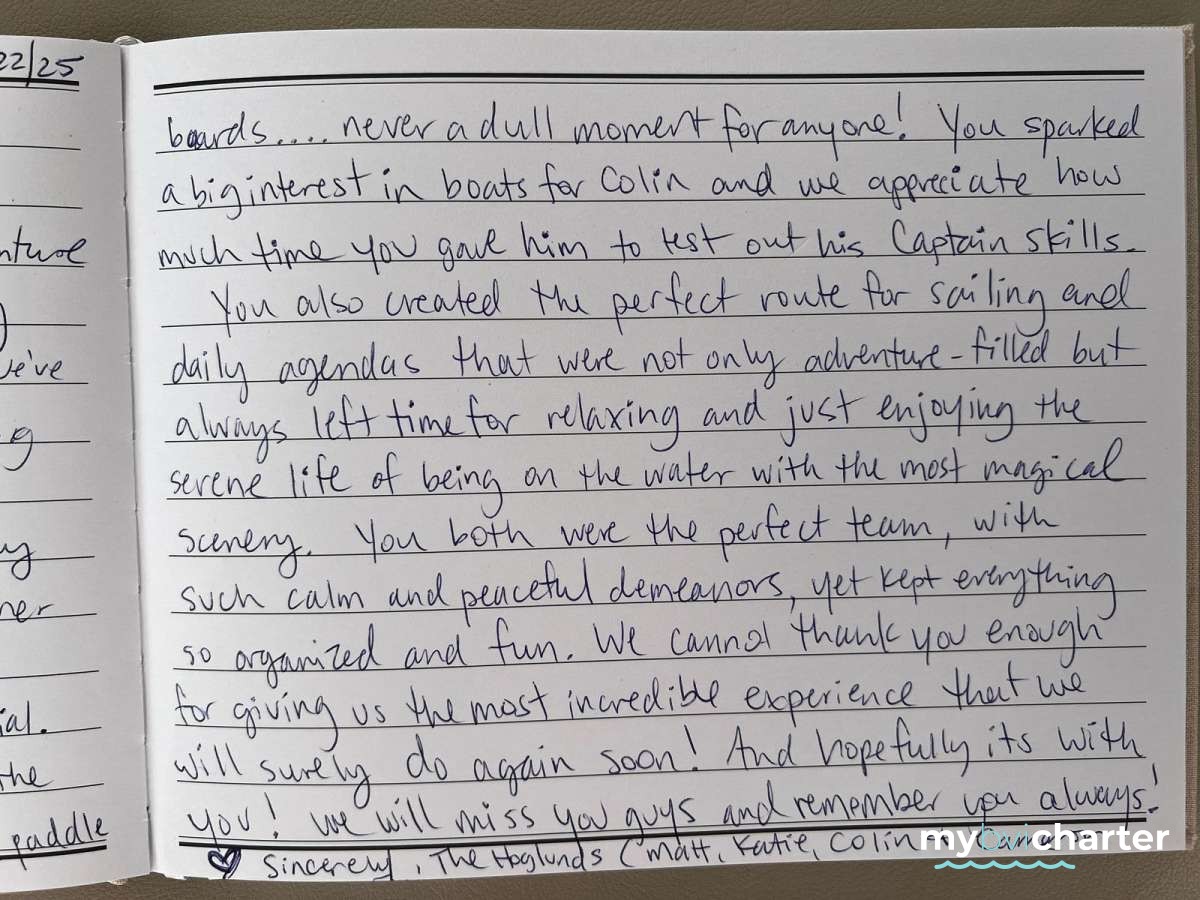 22/25
nture
)
ve've
g
y
ner
ial.
the
paddle
boards.... never a dull moment for anyone! You sparked
a big interest in boats for Colin and we appreciate how
much time you gave him to test out his Captain skills.
You also created the perfect route for sailing and
daily agendas that were not only adventure-filled but
always left time for relaxing and just enjoying the
serene life of being on the water with the most magical
scenery. You both were the perfect team, with
such calm and peaceful demeanors, yet kept everything
so organized and fun. We cannot thank you enough
for giving us the most incredible experience that we
will surely do again soon! And hopefully its with
you! We will miss you guys and remember you always!
♡ Sincerely, The Hoglunds (Matt, Katie, Colin
mybvicharter